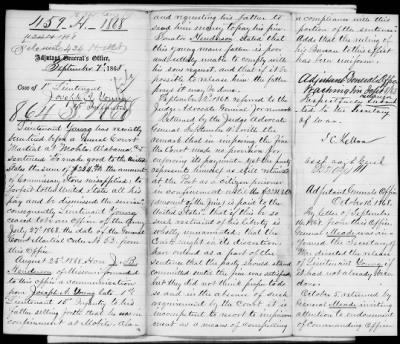 1159. A. 1868
Adjutant General's Office,
September 7, 1868
Case of 1st Lieutenant
Joseph A. Young
15th Infantry
Lieutenant Young has recently
been tried before a General Court
Martial at Mobile, Alabama, &
sentenced to make good to the United
States the sum of
to forfeit to the United States all his
pay and be dismissed the service.
consequently Lieutenant Young
ceased to be an Officer of the Army
July 27th 1868, the date of the General
Court Martial Order No 52, from
this Office
August 25, 1868. Hon J. B.
Henderson of Missouri forwarded to
this office a communication
from Joseph A. Young late 1st
Lieutenant 15th Infantry to his
Father setting forth that he was in
confinement at Mobile, Ala-
and requesting his Father to
send him money to pay his fine.
Senator Henderson states that
this young man's father is poor
and utterly unable to comply with
his son's request, and that if it be
possible to release him the father
prays it may be done.
September 2d 1868 referred to the
Judge Advocate General for remark.
Returned by the Judge Advocate
General September 4th with the
remark that in imposing the fine
the Court made no provision for
enforcing its payment. Yet the party
represents himself as still retained
at the Post as a citizen prisoner
in confinement until the
(amount of the fine) is paid to the
United States; that if this be so
such restraint of his liberty is
wholly unwarranted; that the
Court might in its discretion
have ordered as a part of the
sentence that the party should stand
committed until the fine was satisfied
but they did not think proper to do
so and in the absence of such
requirement by the Court it is
incompetent to resort to imprison-
ment as a means of compelling
a compliance with this
portion of the sentence.
Adds that the ruling of
his Bureau to this effect
has been uniform.
Adjutant General's Office
Washington Sept 1868
Respectfully submit-
ted to the Secretary
of War.
J C Kelton
Adjutant General's Office
October 10, 1868.
By letter of September
1868 from this Office
General Meade was in-
formed the Secretary of
War directed the release
of Lieutenant Young if
it had not already been
done.
October 2 returned by
General Meade inviting
attention to endorsement
of Commanding Officer